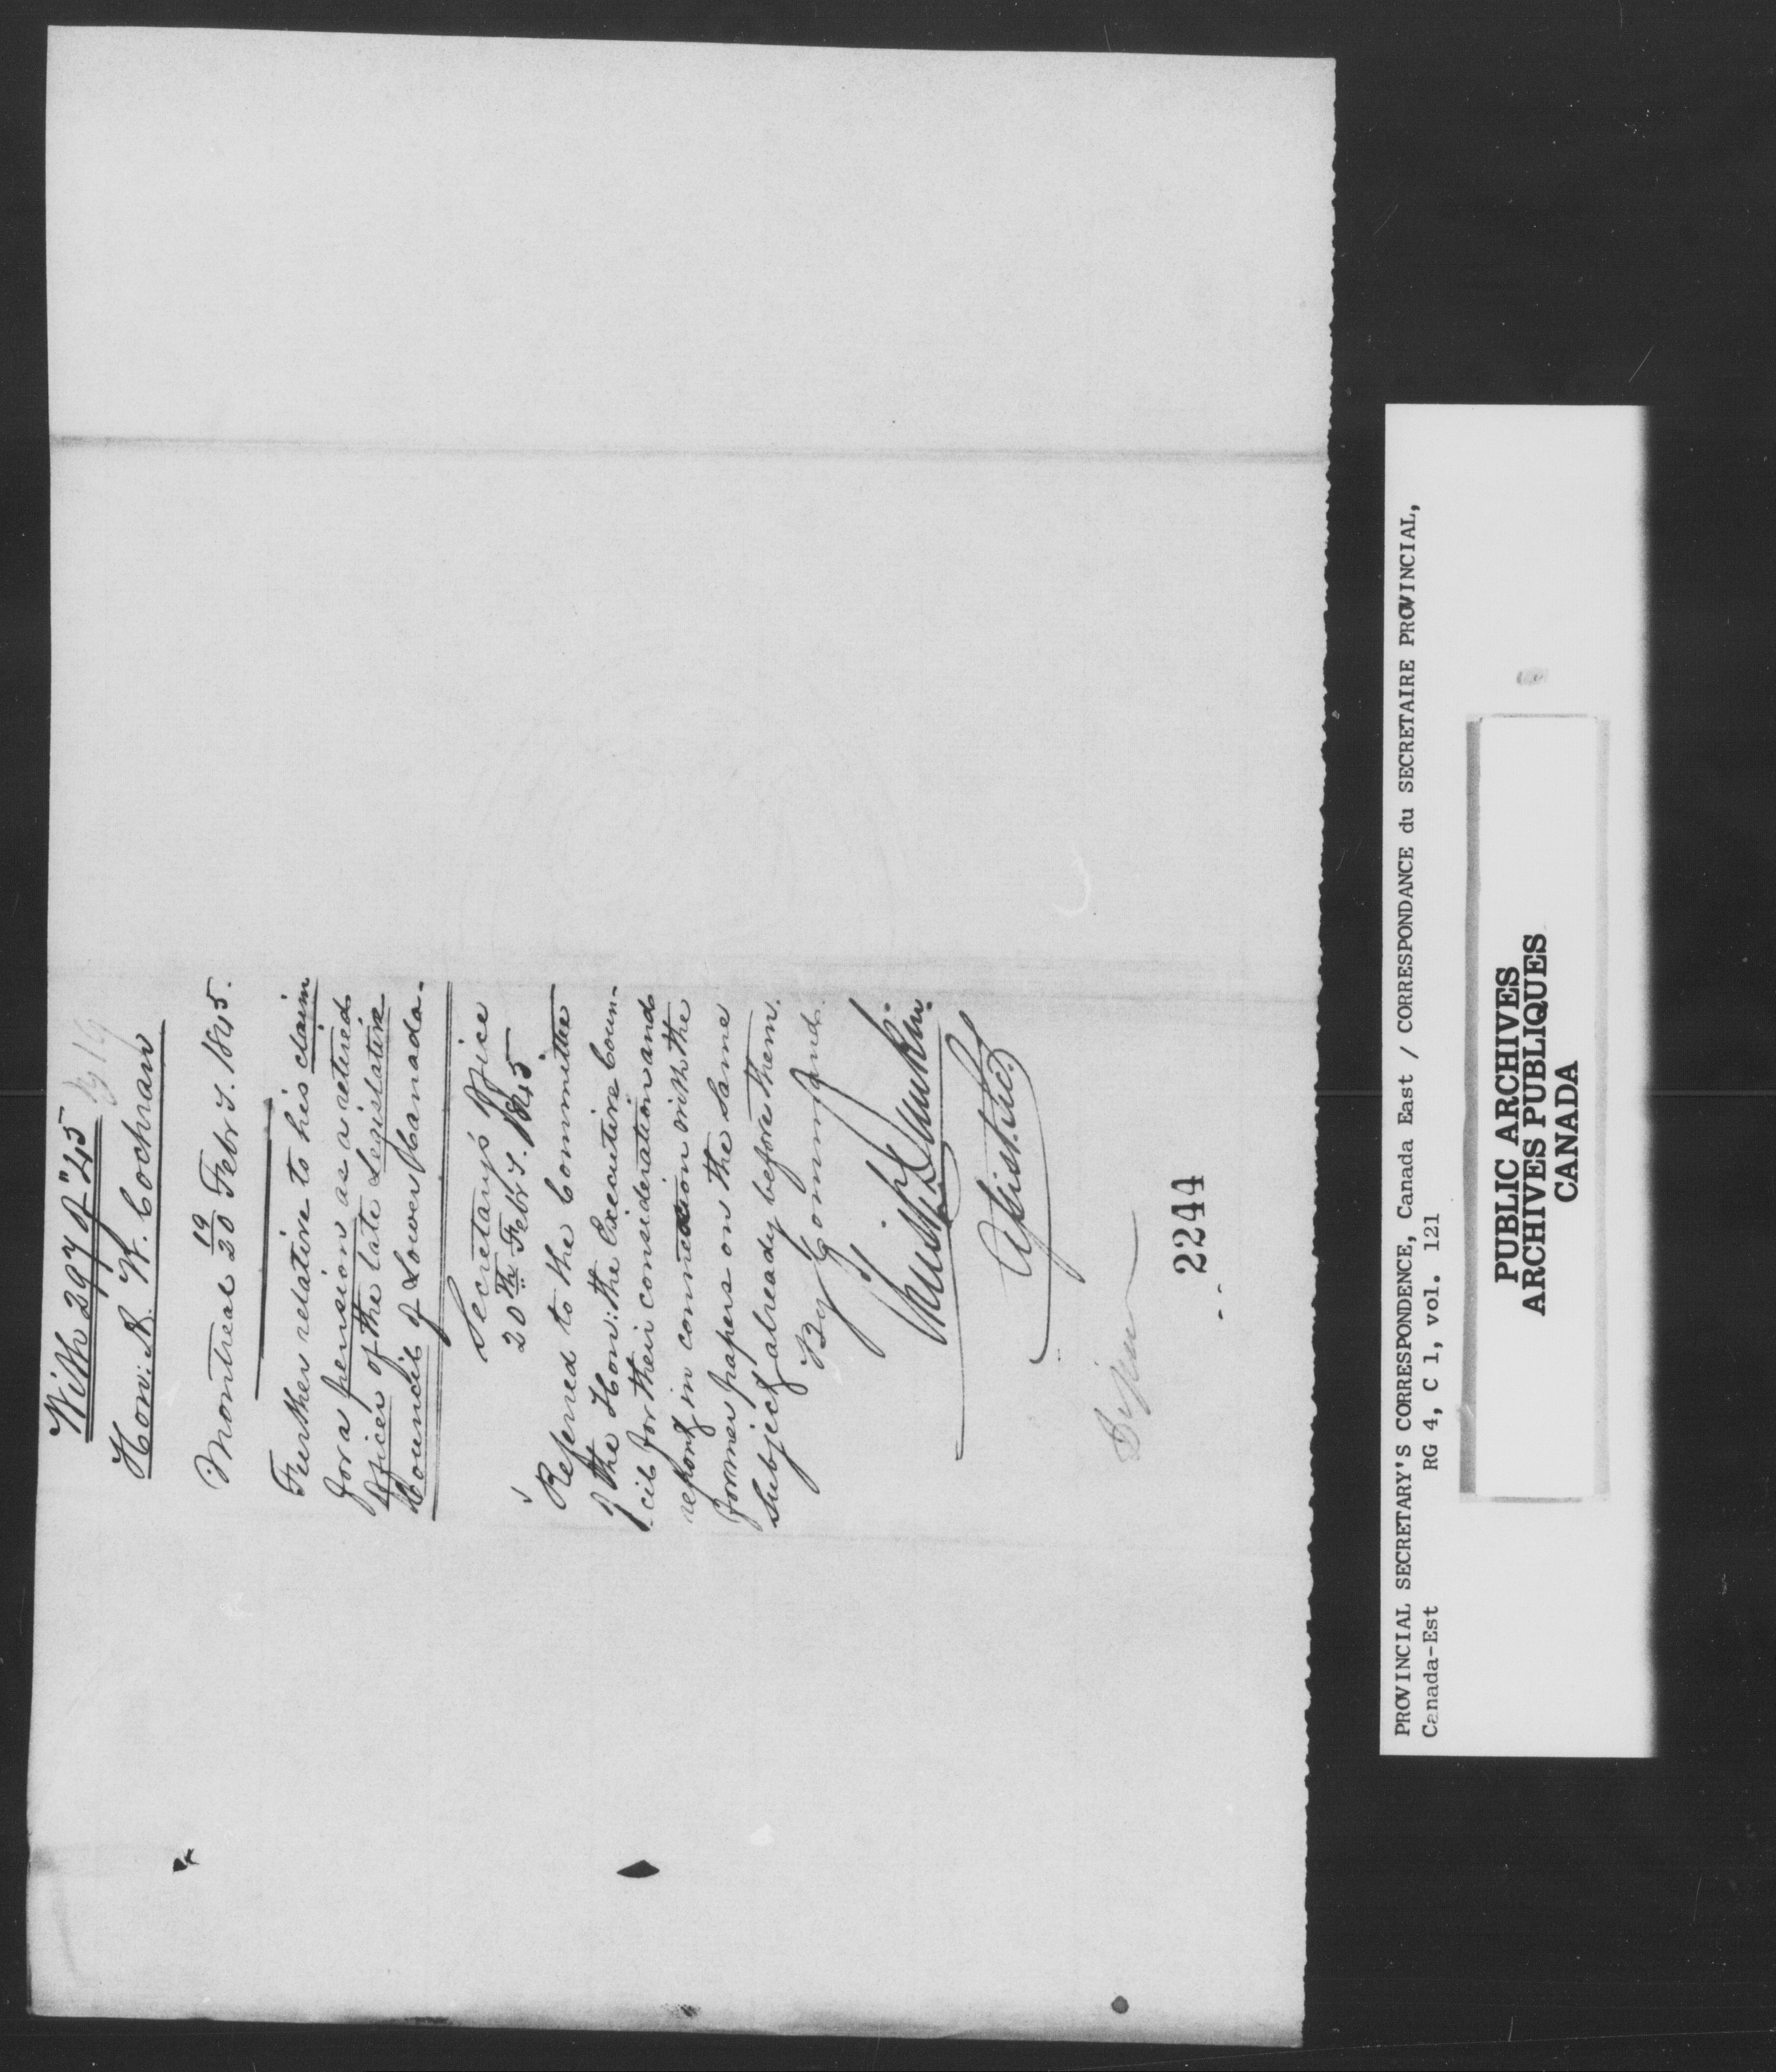 With 297 of "45
Hon: A. W. Cochran
Montreal 20 Febry. 1845.
19
Further relative to his claim
for a pension as a retired
Officer of the late Legislative
Council of Lower Canada.
Secretary's Office
20th Febry. 1845
Referred to the Committee
of the Hon: the Executive Coun-
-cil for their consideration and
report in connection with the
former papers on the same
subject already before them.
By Command.
Christ. Dunkin.
Assist. Sec.
2244
PROVINCIAL SECRETARY'S CORRESPONDENCE, Canada East / CORRESPONDANCE du SECRETAIRE PROVINCIAL,
Canada-Est RG 4, C 1, vol. 121
PUBLIC ARCHIVES
ARCHIVES PUBLIQUES
CANADA